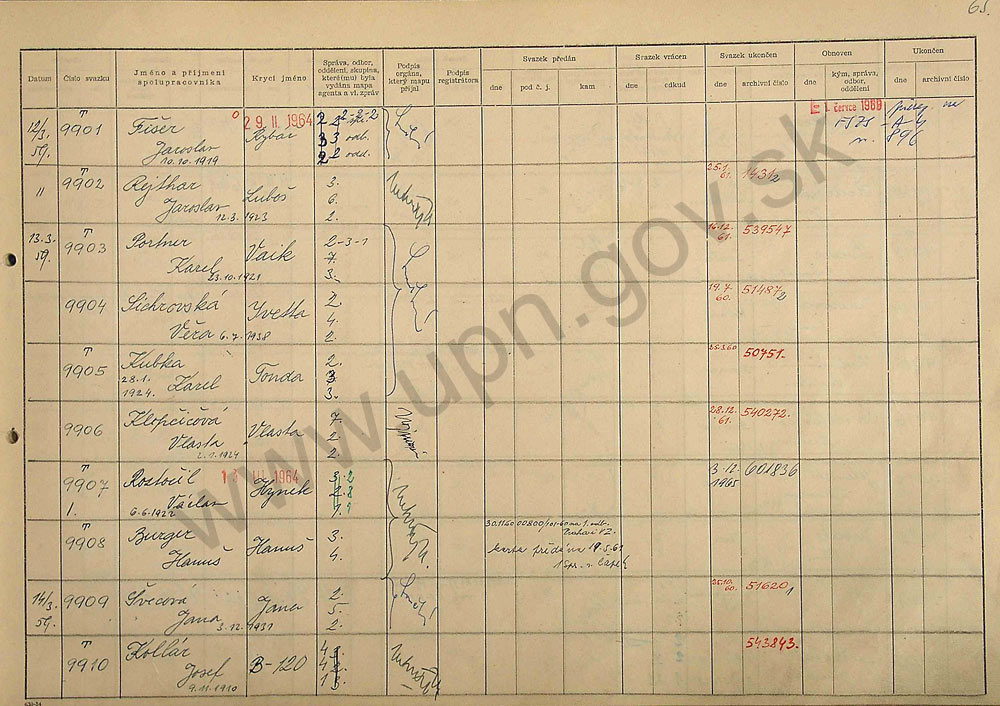 65.
Datum
Číslo svazku
Jméno a příjmení
spolupracovníka
Krycí jméno
Správa, odbor,
oddělení, skupina,
které(mu) byla
vydána mapa
agenta a vl. zpráv
Podpis
orgána,
který mapu
přijal
Podpis
registrátora
Svazek předán
dne
pod č. j.
kam
Svazek vrácen
dne
odkud
Svazek ukončen
dne
archivní číslo
Obnoven
dne
kým, správa,
odbor,
oddělení
Ukončen
dne
archivní číslo
12/3.
59.
T
9901
Fišer
Jaroslav
10.10.1919
29. II. 1964
Rybář
odb.
odd.
1. června 1960
na
A-4
896
"
T
9902
Rejthar
Jaroslav
12.3.1923
Luboš
3.
6.
2.
25.1.
61.
14312
13.3.
59.
T
9903
Portner
Karel
23.10.1921
Vaik
2-3-1
7.
3.
16.12.
61.
539547
9904
Sichrovská
Věra 6.7.1938
Yvetta
2.
4.
2.
19.7.
60.
51487/2
T
9905
Kubka
28.1.
1924. Karel
Tonda
2.
3.
3.
25.3.60
50751.
9906
Klopčičová
Vlasta
2.1.1924
Vlasta
7.
2.
2.
28.12.
61.
540272.
T
9907
1.
Rostočil
Václav
6.6.1922
III 1964
Hynek
3. 12.
1965
601836
T
9908
Burger
Hanuš
Hanuš
3.
4.
karta předána 19.5.61
14/3.
59.
9909
Švecová
Jana
3.12.1931
Jana
2.
5.
2.
25.10.
60.
51620/1
T
9910
Kollár
Josef
9.11.1910
B-120
543843.
www.upn.gov.sk